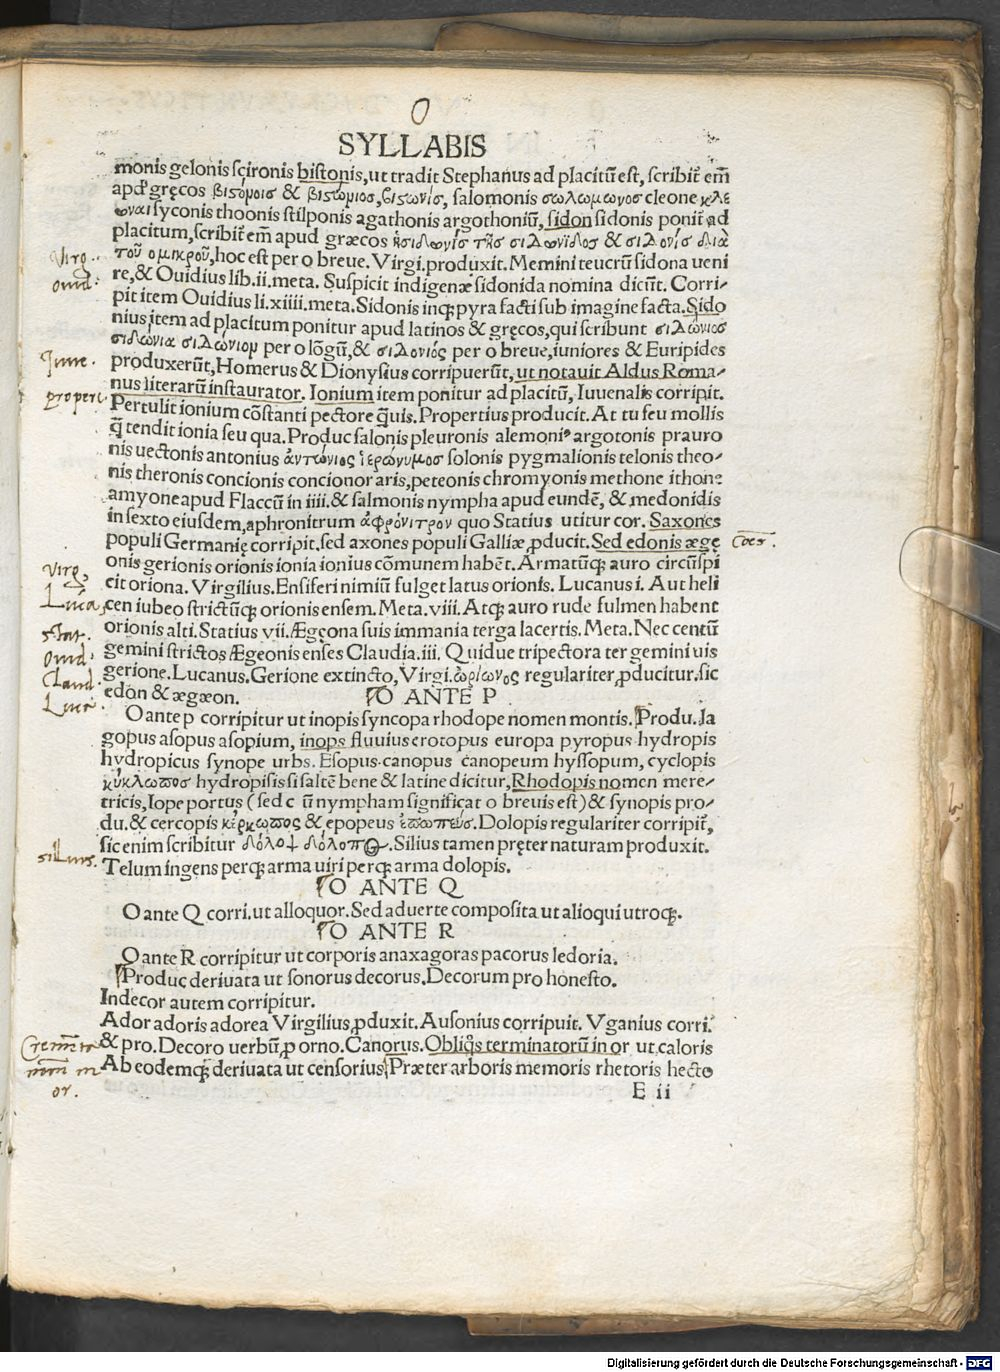 O
SYLLABIS
monis gelonis scironis bistonis, ut tradit Stephanus ad placitũ est, scribit̃ em̃
apd' gręcos βιςόμοις & βιςώμιος, βιςωνίς, salomonis σωλωμωνος cleone κλε
ωναι syconis thoonis stilponis agathonis argothoniũ, sidon sidonis ponit̃ ad
placitum, scribit̃ em̃ apud græcos ἡσιδωνίς τῆς σιδωνῖδος & σιδονίς διὰ
τοῦ ομικροῦ, hoc est per o breue. Virgi. produxit. Memini teucrũ sidona ueni
re, & Ouidius lib.ii.meta. Suspicit indigenæ sidonida nomina dicũt. Corri-
pit item Ouidius li.xiiii.meta. Sidonis inq̃ pyra facti sub imagine facta. Sido
nius item ad placitum ponitur apud latinos & gręcos, qui scribunt σιδώνιος
σιδωνία σιδώνιομ per o lõgũ, & σιδονιός per o breue, iuniores & Euripides
produxerũt, Homerus & Dionysius corripuerũt, ut notauit Aldus Roma-
nus literarũ instaurator. Ionium item ponitur ad placitũ, Iuuenalis corripit.
Pertulit ionium cõstanti pectore q̃uis. Propertius producit. At tu seu mollis
q̃ tendit ionia seu qua. Produc salonis pleuronis alemoniꝰ argotonis prauro
nis uectonis antonius ἀντώνιος ἱερώνυμος solonis pygmalionis telonis theo-
nis theronis concionis concionor aris, peteonis chromyonis methone ithone
amyone apud Flaccũ in iiii. & salmonis nympha apud eundẽ, & medonidis
in sexto eiusdem, aphronitrum ἀφρόνιτρον quo Statius utitur cor. Saxones
populi Germanię corripit. sed axones populi Galliæ ꝓducit. Sed edonis ægę
onis gerionis orionis ionia ionius cõmunem habẽt. Armatũq; auro circũspi
cit oriona. Virgilius. Ensiferi nimiũ fulget latus orionis. Lucanus i. Aut heli
cen iubeo strictũq; orionis ensem. Meta. viii. Atq; auro rude fulmen habent
orionis alti. Statius vii. Ægęona suis immania terga lacertis. Meta. Nec centũ
gemini strictos Ægeonis enses Claudia.iii. Quidue tripectora ter gemini uis
gerione. Lucanus. Gerione extincto, Virgi. ὠρίωνος regulariter ꝓducitur. sic
edon & ægæon.
O ANTE P
O ante p corripitur ut inopis syncopa rhodope nomen montis. Produ. la
gopus asopus asopium, inops fluuius crotopus europa pyropus hydropis
hydropicus synope urbs. Esopus canopus canopeum hyssopum, cyclopis
κύκλωπος hydropisis si saltẽ bene & latine dicitur, Rhodopis nomen mere-
tricis, Iope portus (sed c ũ nympham significat o breuis est) & synopis pro-
du. & cercopis κέρκωπος & epopeus ἐποπεύς. Dolopis regulariter corripit̃,
sic enim scribitur δόλοψ δόλοπος. Silius tamen pręter naturam produxit.
Telum ingens perq; arma uiri perq; arma dolopis.
O ANTE Q
O ante Q corri. ut alloquor. Sed aduerte composita ut alioqui utroq;.
O ANTE R
O ante R corripitur ut corporis anaxagoras pacorus ledoria.
Produc deriuata ut sonorus decorus. Decorum pro honesto.
Indecor autem corripitur.
Ador adoris adorea Virgilius ꝓduxit. Ausonius corripuit. Vganius corri.
& pro. Decoro uerbũ ꝓ orno. Canorus. Obliq̃s terminatorũ in or ut caloris
Ab eodemq; deriuata ut censorius Præter arboris memoris rhetoris hecto
E ii
Virg.
Ouid.
Iuue.
properti
Cões.
Virg.
Lucã.
Stat.
Ouid.
Claud.
Lucã.
Sillius.
or.
Digitalisierung gefördert durch die Deutsche Forschungsgemeinschaft - DFG